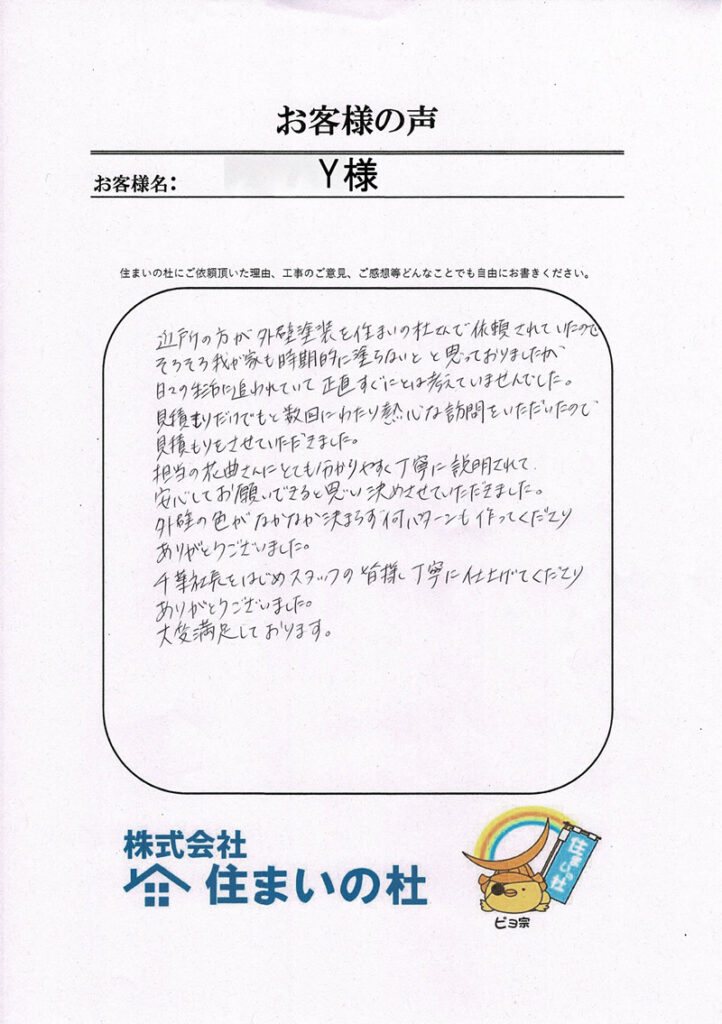 お客様の声
お客様名: Y様
住まいの杜にご依頼頂いた理由、工事のご意見、ご感想等どんなことでも自由にお書きください。
近所の方が外壁塗装を住まいの杜さんで依頼されていたので
そろそろ我が家も時期的に塗らないとと思っておりましたが
日々の生活に追われていて正直すぐにとは考えていませんでした。
見積もりだけでもと数回にわたり熱心な訪問をいただいたので
見積もりをさせていただきました。
担当の花曲さんにとても分かりやすく丁寧に説明されて
安心してお願いできると思い決めさせていただきました。
外壁の色がなかなか決まらず何パターンも作ってくださり
ありがとうございました。
千葉社長をはじめスタッフの皆様丁寧に仕上げてくださり
ありがとうございました。
大変満足しております。
株式会社
住まいの杜
住まいの杜
ピヨ宗